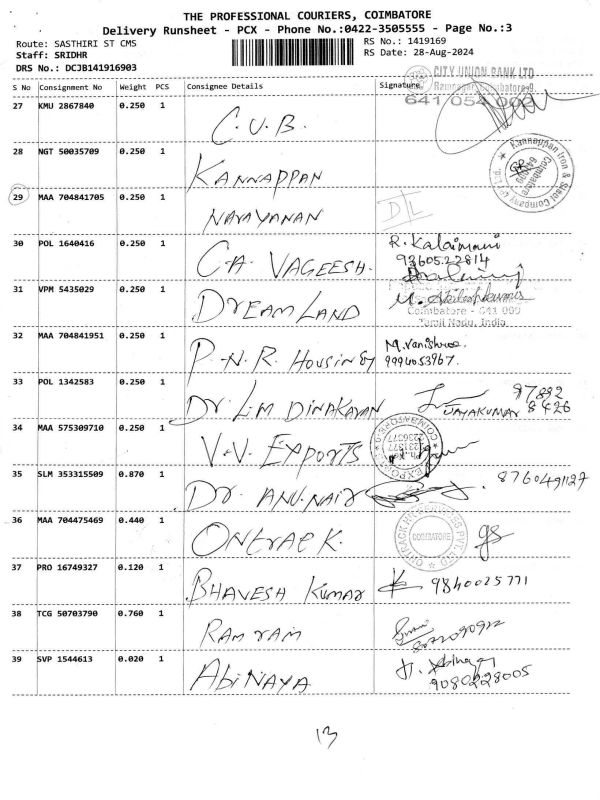 THE PROFESSIONAL COURIERS, COIMBATORE
Delivery Runsheet - PCX - Phone No.:0422-3505555 - Page No.:3
Route: SASTHIRI ST CMS
RS No.: 1419169
Staff: SRIDHR
RS Date: 28-Aug-2024
DRS No.: DCJB141916903
CITY UNION BANK LTD
S No Consignment No Weight PCS Consignee Details Signature
641 054 009
27 KMU 2867840 0.250 1 C.U.B.
28 NGT 50035709 0.250 1 KANNAPPAN
Kannappan Iron & Steel Company
Coimbatore
29 MAA 704841705 0.250 1 NARAYANAN D/L
30 POL 1640416 0.250 1 C.A. VAGEESH. R. Kalaimani
93605.22814
31 VPM 5435029 0.250 1 DREAMLAND
Coimbatore - 641 009
Tamil Nadu, India
32 MAA 704841951 0.250 1 P.N.R. HOUSING
9994053967.
33 POL 1342583 0.250 1 Dr L.M DINAKARAN JAYAKUMAR 97892
8426
34 MAA 575309710 0.250 1 V.V. EXPORTS
COIMBATORE
35 SLM 353315509 0.870 1 Dr. ANU.NAIR 8760491127
36 MAA 704475469 0.440 1 ONTRACK.
COIMBATORE
gs
37 PRO 16749327 0.120 1 BHAVESH Kumar 9840025771
38 TCG 50703790 0.760 1 RAM RAM
39 SVP 1544613 0.020 1 ABINAYA
9080228005
13